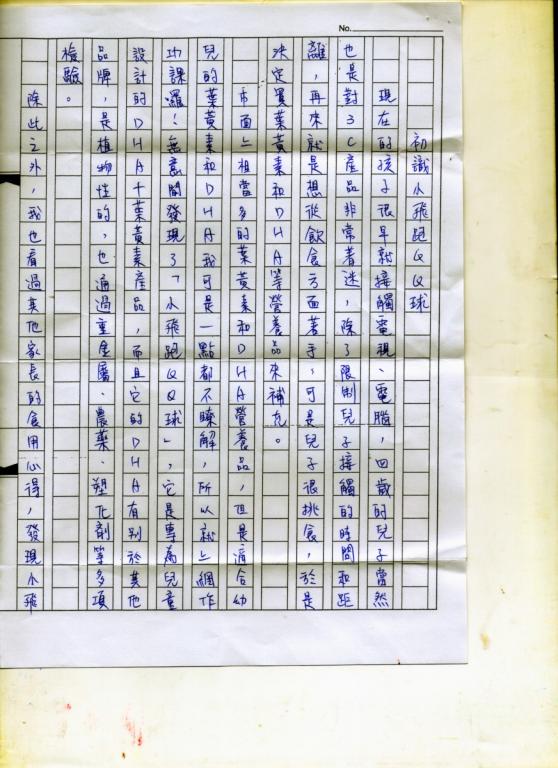 No.
初識小飛跑QQ球
現在的孩子很早就接觸電視、電腦，四歲的兒子當然
也是對3C產品非常著迷，除了限制兒子接觸的時間和距
離，再來就是想從飲食方面著手，可是兒子很挑食，於是
決定買葉黃素和DHA等營養品來補充。
市面上相當多的葉黃素和DHA營養品，但是適合幼
兒的葉黃素和DHA我可是一點都不瞭解，所以就上網作
功課囉！無意間發現了「小飛跑QQ球」，它是專為兒童
設計的DHA十葉黃素產品，而且它的DHA有別於其他
品牌，是植物性的，也通過重金屬、農藥、塑化劑等多項
檢驗。
除此之外，我也看過其他家長的食用心得，發現小飛